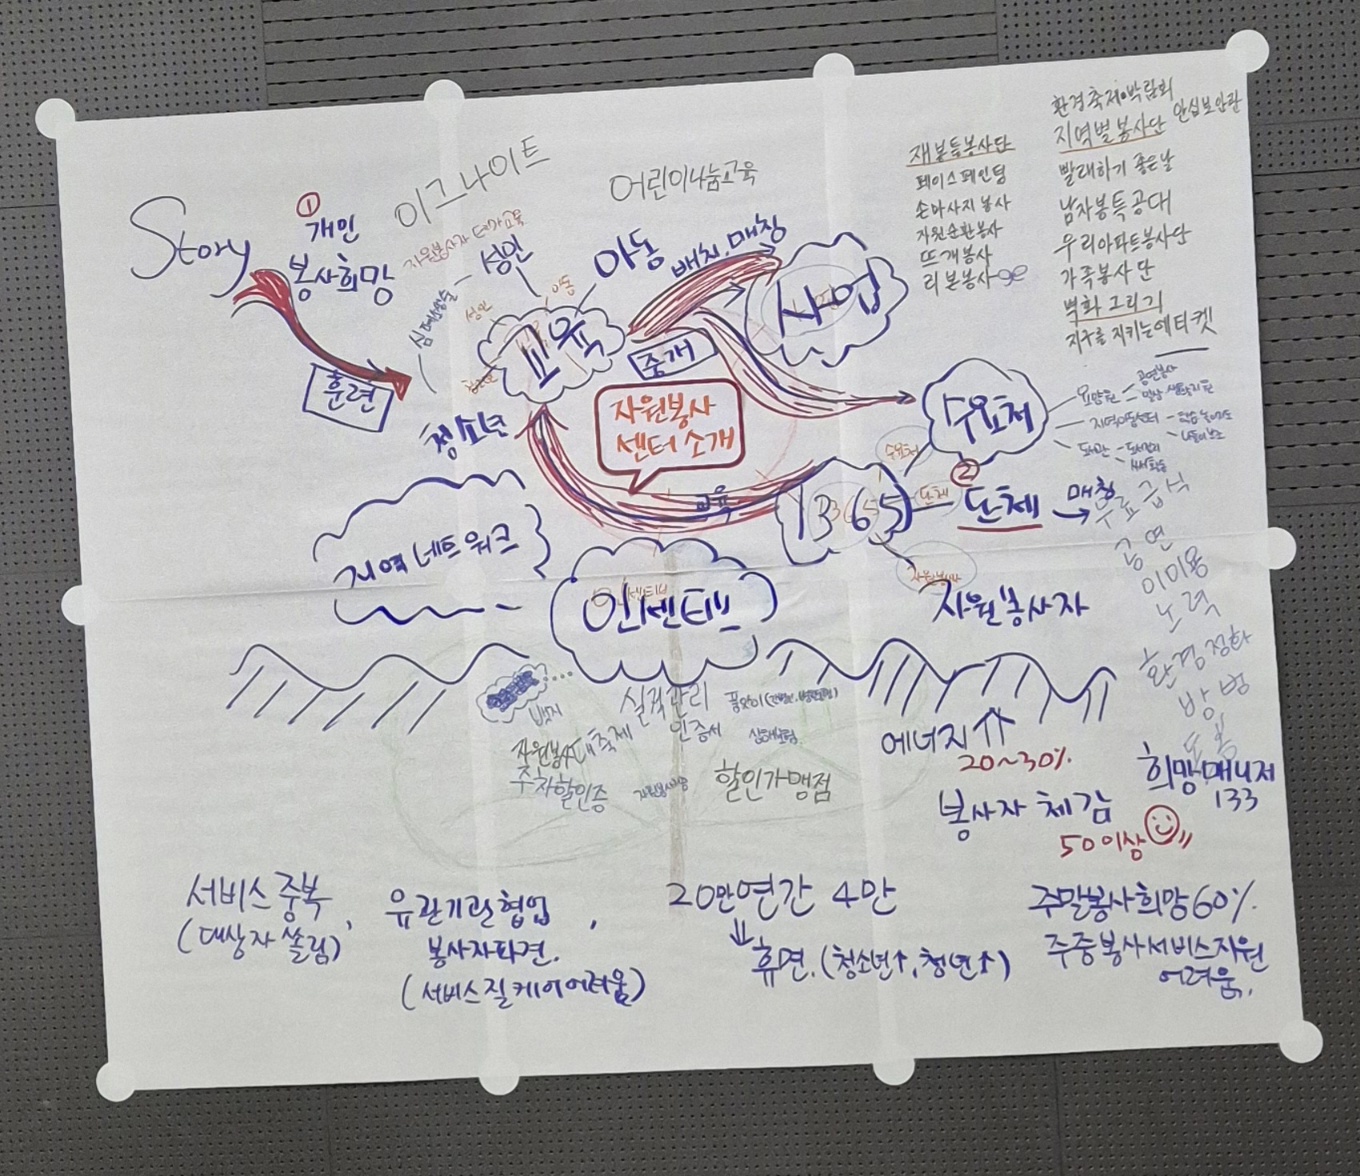 Story
①
개인
봉사희망
이그나이트
자원봉사자 테마교육
성인
아동
성인
아동
어린이나눔교육
배치, 매칭
사업
교육
중개
훈련
청소년
자원봉사
센터 소개
교육
재봉틀봉사단
페이스페인팅
손마사지 봉사
자원순환봉사
뜨개봉사
리본봉사
환경축제·박람회
지역별봉사단
안심보안관
빨래하기 좋은날
남자봉특공대
우리아파트봉사단
가족봉사단
벽화 그리기
지구를 지키는 에티켓
수요처
요양원
공연봉사
도서관
수요처
1365
단체
②
단체
매칭
자원봉사
자원봉사자
무료급식
공연
이미용
노력
환경정화
방범
지역네트워크
인센티브
인센티브
실적관리
인증서
자원봉사대축제
주차할인증
할인가맹점
에너지 ⇈
20~30%
봉사자 체감
50이상
희망매니저
133
서비스중복
(대상자 쏠림),
유관기관협업,
봉사자파견.
(서비스질 케어어려움)
20만 연간 4만
휴면. (청소년↑, 청년↑)
주말봉사희망60%.
주중봉사서비스지원
어려움.